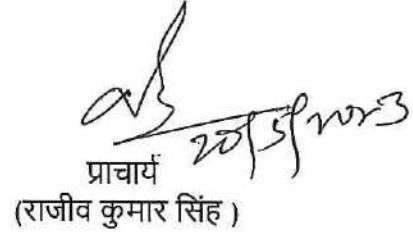 20/5/2023
प्राचार्य
(राजीव कुमार सिंह )